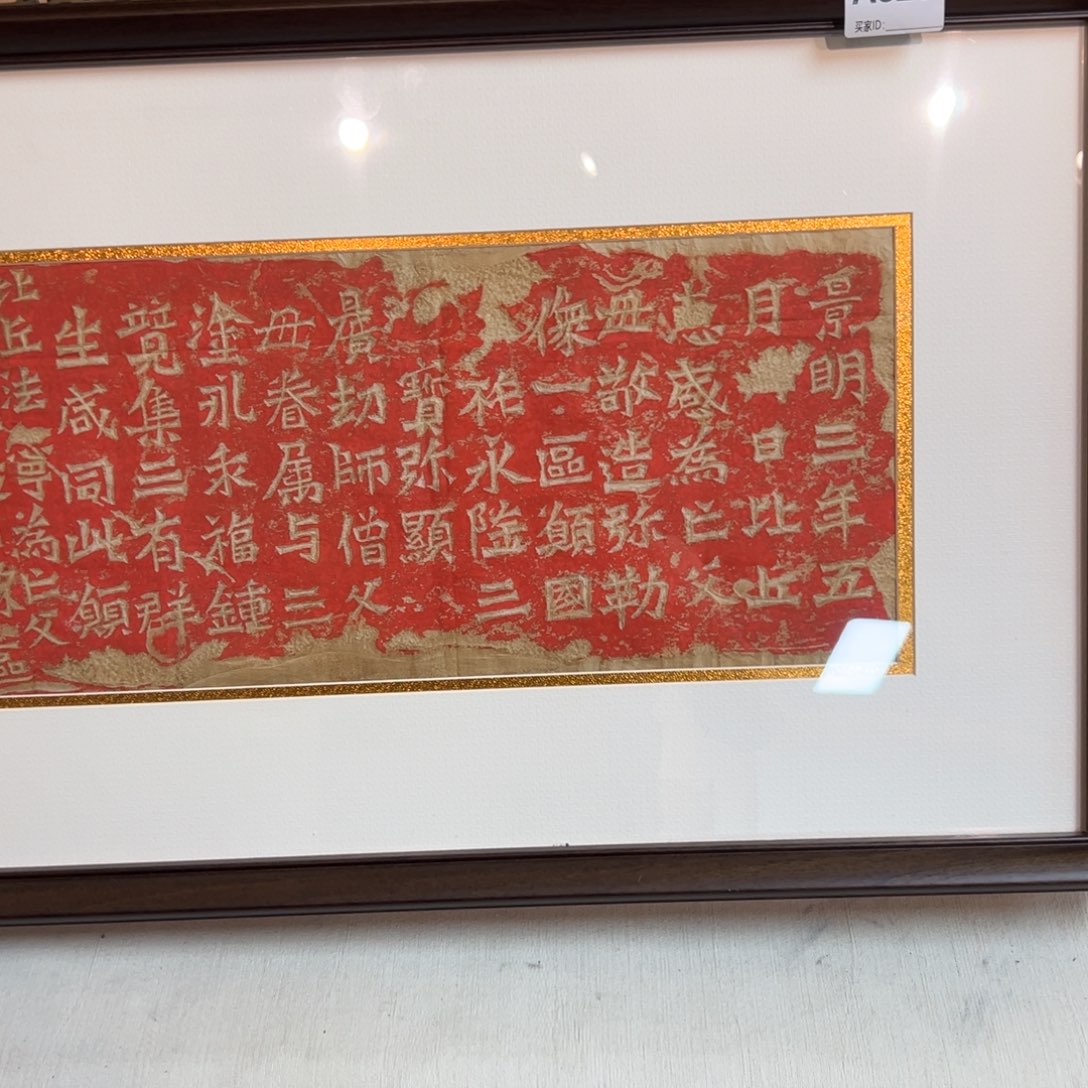 买家ID:
景明三年五
月日比丘
惠感為亡父
母敬造弥勒
像一區願國
祚永隆三
寶弥顯
曠劫師僧父
母眷属与三
塗永乖福鍾
竟集三有群
生咸同此願
比丘法寧為亡父